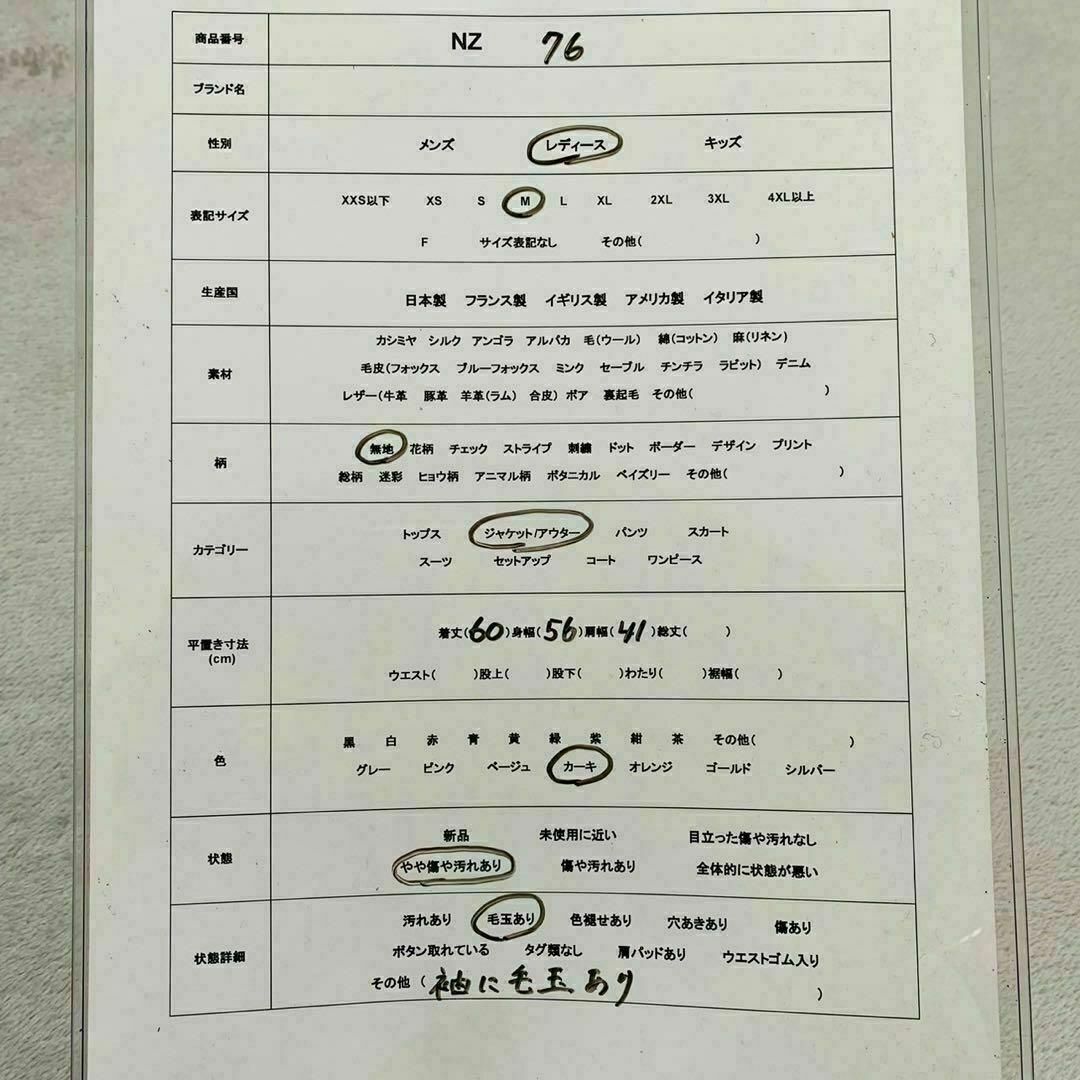 商品番号 NZ 76
ブランド名
性別 メンズ レディース キッズ
XXS以下 XS S M L XL 2XL 3XL 4XL以上
表記サイズ
F サイズ表記なし その他( )
生産国 日本製 フランス製 イギリス製 アメリカ製 イタリア製
カシミヤ シルク アンゴラ アルパカ 毛(ウール) 綿(コットン) 麻(リネン)
素材 毛皮(フォックス ブルーフォックス ミンク セーブル チンチラ ラビット) デニム
レザー(牛革 豚革 羊革(ラム) 合皮) ボア 裏起毛 その他( )
無地 花柄 チェック ストライプ 刺繍 ドット ボーダー デザイン プリント
柄
総柄 迷彩 ヒョウ柄 アニマル柄 ボタニカル ペイズリー その他( )
トップス ジャケット/アウター パンツ スカート
カテゴリー
スーツ セットアップ コート ワンピース
着丈(60)身幅(56)肩幅(41)総丈( )
平置き寸法
(cm)
ウエスト( )股上( )股下( )わたり( )裾幅( )
黒 白 赤 青 黄 緑 紫 紺 茶 その他( )
色
グレー ピンク ベージュ カーキ オレンジ ゴールド シルバー
新品 未使用に近い 目立った傷や汚れなし
状態
やや傷や汚れあり 傷や汚れあり 全体的に状態が悪い
汚れあり 毛玉あり 色褪せあり 穴あきあり 傷あり
状態詳細 ボタン取れている タグ類なし 肩パッドあり ウエストゴム入り
その他 ( 袖に毛玉あり )